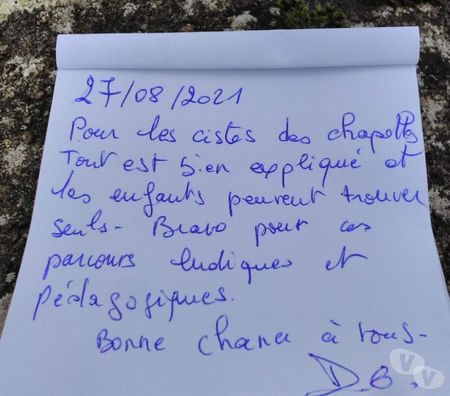 27/08/2021
Pour les cistes des chapottes
Tout est bien expliqué et
les enfants peuvent trouver
seuls - Bravo pour ces
parcours ludiques et
pédagogiques.
Bonne chance à tous -
D.B.
VV